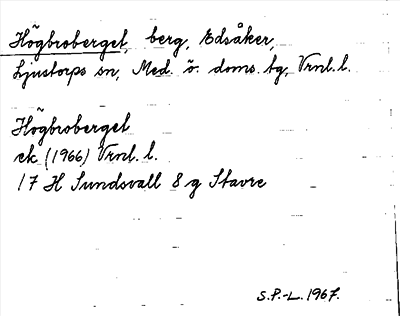 Högbroberget, berg, Edsåker,
Ljustorps sn, Med. ö. doms. tg, Vrnl. l.
Högbroberget
ek (1966) Vrnl. l.
17 H Sundsvall 8 g Stavre
S.P.-L. 1967.